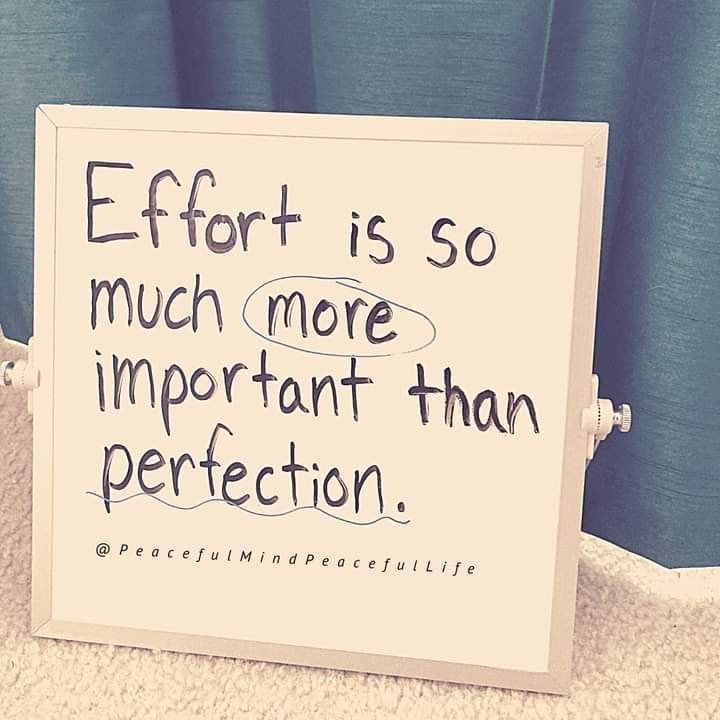 Effort is so
much more
important than
perfection.
@PeacefulMindPeacefulLife